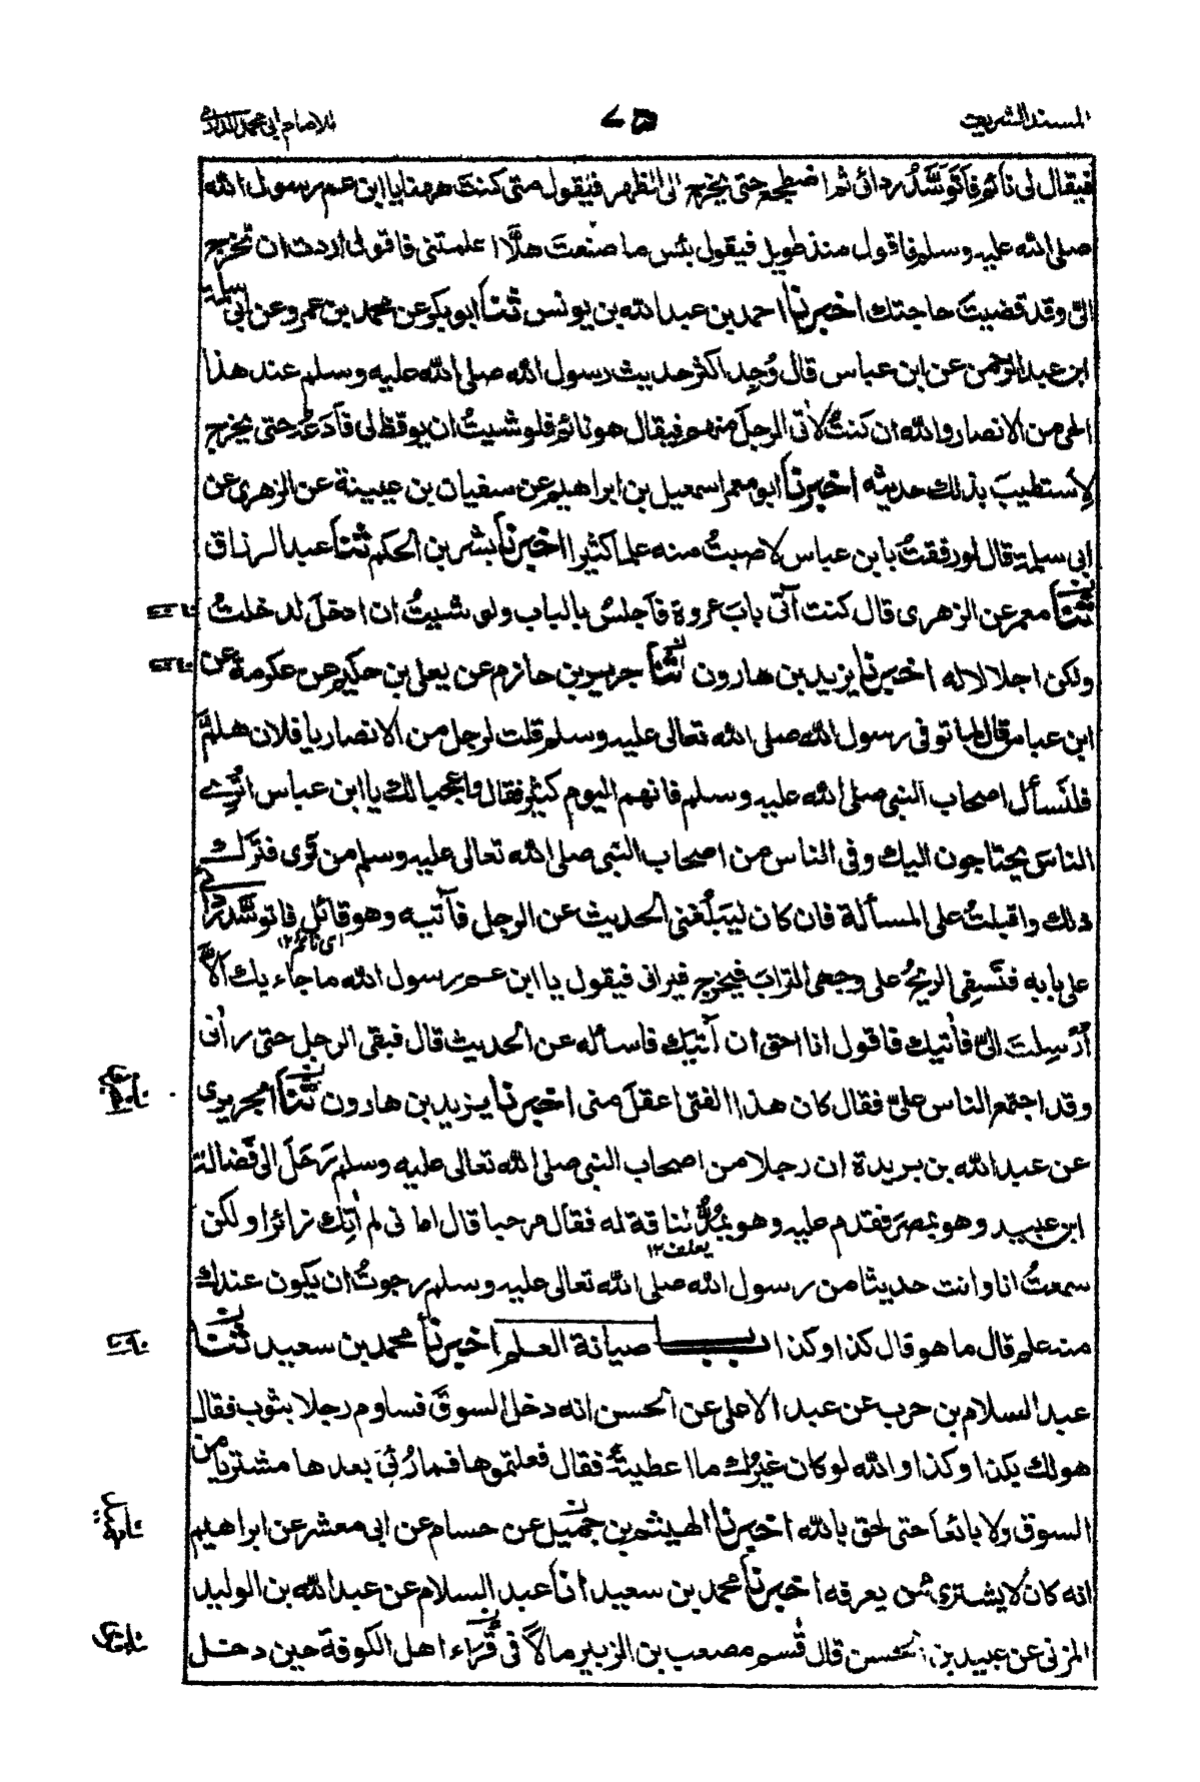 المسند الشريف ٧٥ للامام ابى محمد الدارمى
فيقال لى نائم فاَتَوَسَّدُ ردائى ثم اضطجع حتى يخرج الى الظهر فيقول متى كنتَ ههنا يا ابن عم رسول الله
صلى الله عليه وسلم فاقول منذ طويل فيقول بئس ما صنعتَ هلّا اعلمتنى فاقول اردت ان تخرج
الىّ وقد قضيتَ حاجتك اخبرنا احمد بن عبد الله بن يونس ثنا ابو بكر عن محمد بن عمرو عن ابى سلمة
ابن عبد الرحمن عن ابن عباس قال وُجِد اكثر حديث رسول الله صلى الله عليه وسلم عند هذا
الحى من الانصار والله ان كنتُ لاٰتى الرجلَ منهم فيقال هو نائم فلو شيتُ ان يوقظ لى فاَدَعُه حتى يخرج
لِاَستطيبَ بذلك حديثه اخبرنا ابو معمر اسمعيل بن ابراهيم عن سفيان بن عيينة عن الزهرى عن
ابى سلمة قال لو رفقتُ بابن عباس لاصبتُ منه علما كثيرا اخبرنا بشر بن الحكم ثنا عبد الرزاق
ثنا معمر عن الزهرى قال كنت آتى بابَ عروة فاَجلسُ بالباب ولو شيتُ ان ادخلَ لدخلتُ
ولكن اجلالا له اخبرنا يزيد بن هارون ثنا جرير بن حازم عن يعلى بن حكيم عن عكرمة عن
ابن عباس قال لما توفى رسول الله صلى الله تعالى عليه وسلم قلت لرجل من الانصار يا فلان هلمَّ
فلنَسأل اصحاب النبى صلى الله عليه وسلم فانهم اليوم كثير فقال واعجبا لك يا ابن عباس اتُرى
الناسَ يحتاجون اليك وفى الناس من اصحاب النبى صلى الله تعالى عليه وسلم من تَرى فترَك
ذلك واقبلتُ على المسألة فان كان ليَبلُغنى الحديث عن الرجل فآتيه وهو قائل فاتوسَّد ردائى
اى نائم ١٢
على بابه فتَسفِى الريحُ على وجهى الترابَ فيخرج فيرانى فيقول يا ابن عم رسول الله ما جاء بك اَلّا
اَرسلتَ الىّ فاٰتيك فاقول انا احق ان آتيك فاسأله عن الحديث قال فبقى الرجل حتى رآنى
وقد اجتمع الناس علىّ فقال كان هذا الفتى اعقلَ منى اخبرنا يزيد بن هارون ثنا الجريرى
عن عبد الله بن بريدة ان رجلا من اصحاب النبى صلى الله تعالى عليه وسلم رَحَلَ الى فَضالة
ابن عبيد وهو بمصرَ فقدم عليه وهو يمُدُّ لناقة له فقال مرحبا قال اما انى لم اٰتِك زائرا ولكن
يعلف ١٢
سمعتُ انا وانت حديثا من رسول الله صلى الله تعالى عليه وسلم رجوتُ ان يكون عندك
منه علم قال ما هو قال كذا وكذا باب صيانة العلم اخبرنا محمد بن سعيد ثنا
عبد السلام بن حرب عن عبد الاعلى عن الحسن انه دخل السوقَ فساوم رجلا بثوب فقال
هو لك بكذا وكذا والله لو كان غيرُك ما اعطيتُه فقال فعلتموها فما رُئِىَ بعدها مشتريا من
السوق ولا بائعاً حتى لحق بالله اخبرنا الهيثم بن جميل عن حسام عن ابى معشر عن ابراهيم
انه كان لا يشترى ممن يعرفه اخبرنا محمد بن سعيد انا عبد السلام عن عبد الله بن الوليد
المزنى عن عبيد بن الحسن قال قَسم مصعب بن الزبير مالاً فى قُرّاء اهل الكوفة حين دخل